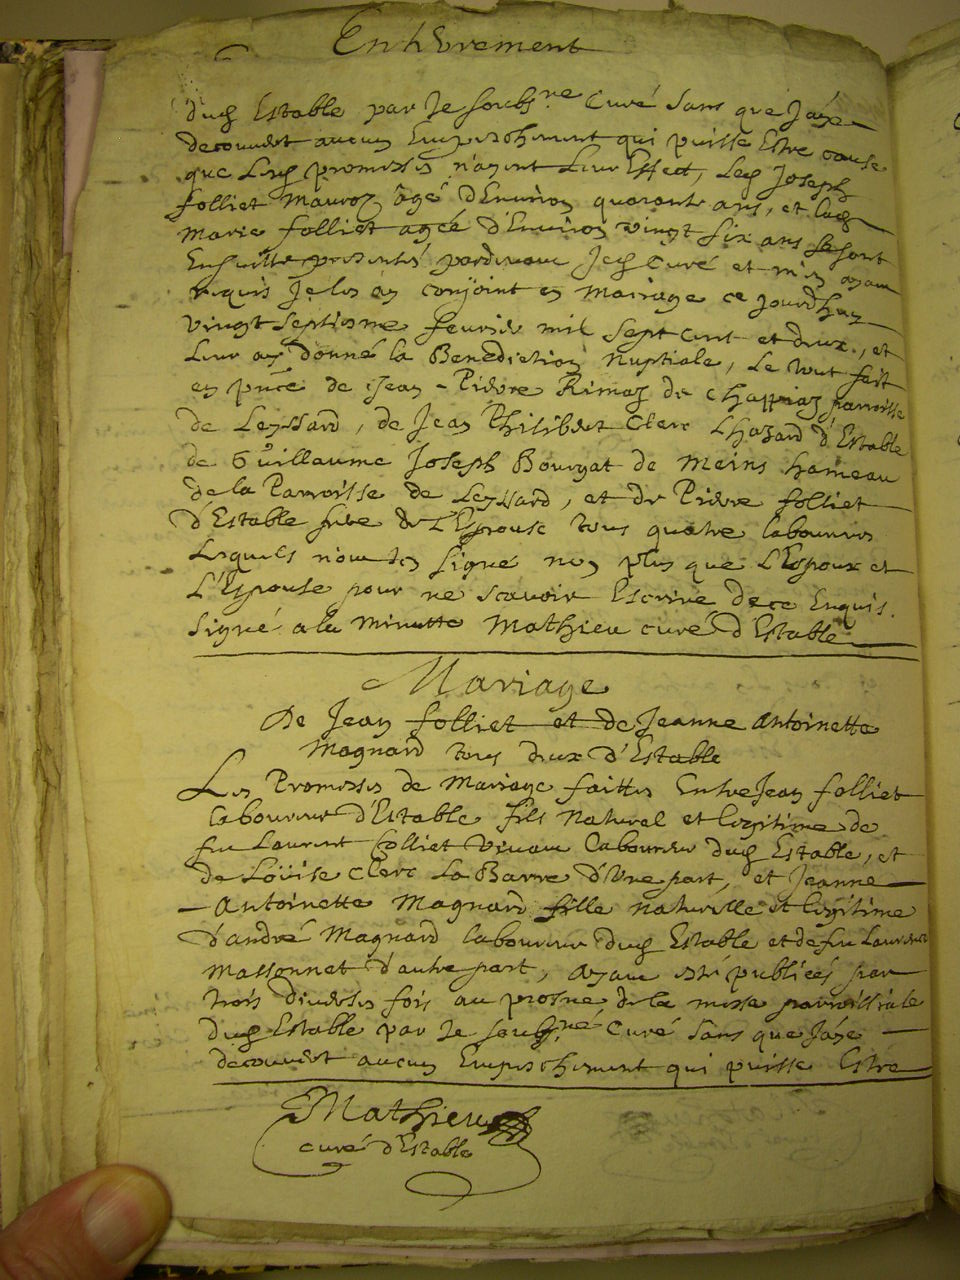 Enterrement
dud Estable par Je soubs.ne Curé sans que J'aye
decouvert aucun Empeschement qui puisse Estre cause
que Leurs promesses n'ayent Leur Effect, Led Joseph
folliet Mauroz âgé d'Environ quarante ans, et lad
Marie folliet agée d'Environ vingt six ans se sont
Ensuitte presentés pardevant Jed Curé et m'en ayant
requis Je les ay conjoint en Mariage ce jourd'huy
vingt septiesme fevrier mil sept cent et deux, et
Leur ay donné la Benediction Nuptiale, Le tout fait
en pnce de Jean-Pierre Rimaz de Chappiaz parroisse
de Leyssard, de Jean Philibert Clerc Lhazard d'Estable
de Guillaume Joseph Bourgat de Meins hameau
de la Parroisse de Leyssard, et de Pierre folliet
d'Estable frere de L'Espouse tous quatre laboureurs
Lesquels n'ont signé non plus que L'Espoux et
L'Espouse pour ne scavoir Escrire de ce Enquis.
signé a la Minutte Mathieu curé d'Estable
Mariage
De Jean folliet et de Jeanne Antoinette
Magnard tous deux d'Estable
Les Promesses de Mariage faittes Entre Jean folliet
laboureur d'Estable fils Naturel et legitime de
feu Laurent folliet vivant laboureur dud Estable, et
de Loüise Clerc La Barre d'Une part, et Jeanne
Antoinette Magnard fille naturelle et legitime
d'andré Magnard laboureur dud Estable et de feu Laurence
Massonnet d'autre part, ayant esté publiées par
trois diverses fois au prosne de la messe parroissiale
dud Estable par Je soubsné Curé sans que J'aye
decouvert aucun Empeschement qui puisse Estre
Mathieu
curé d'Estable